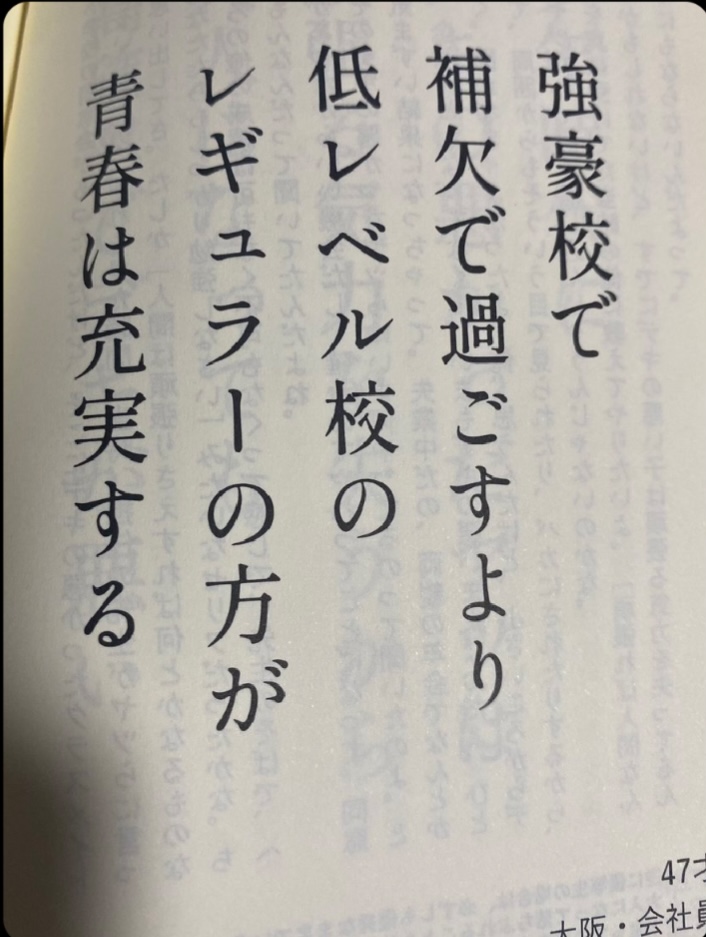 強豪校で
補欠で過ごすより
低レベル校の
レギュラーの方が
青春は充実する
47才
大阪・会社員